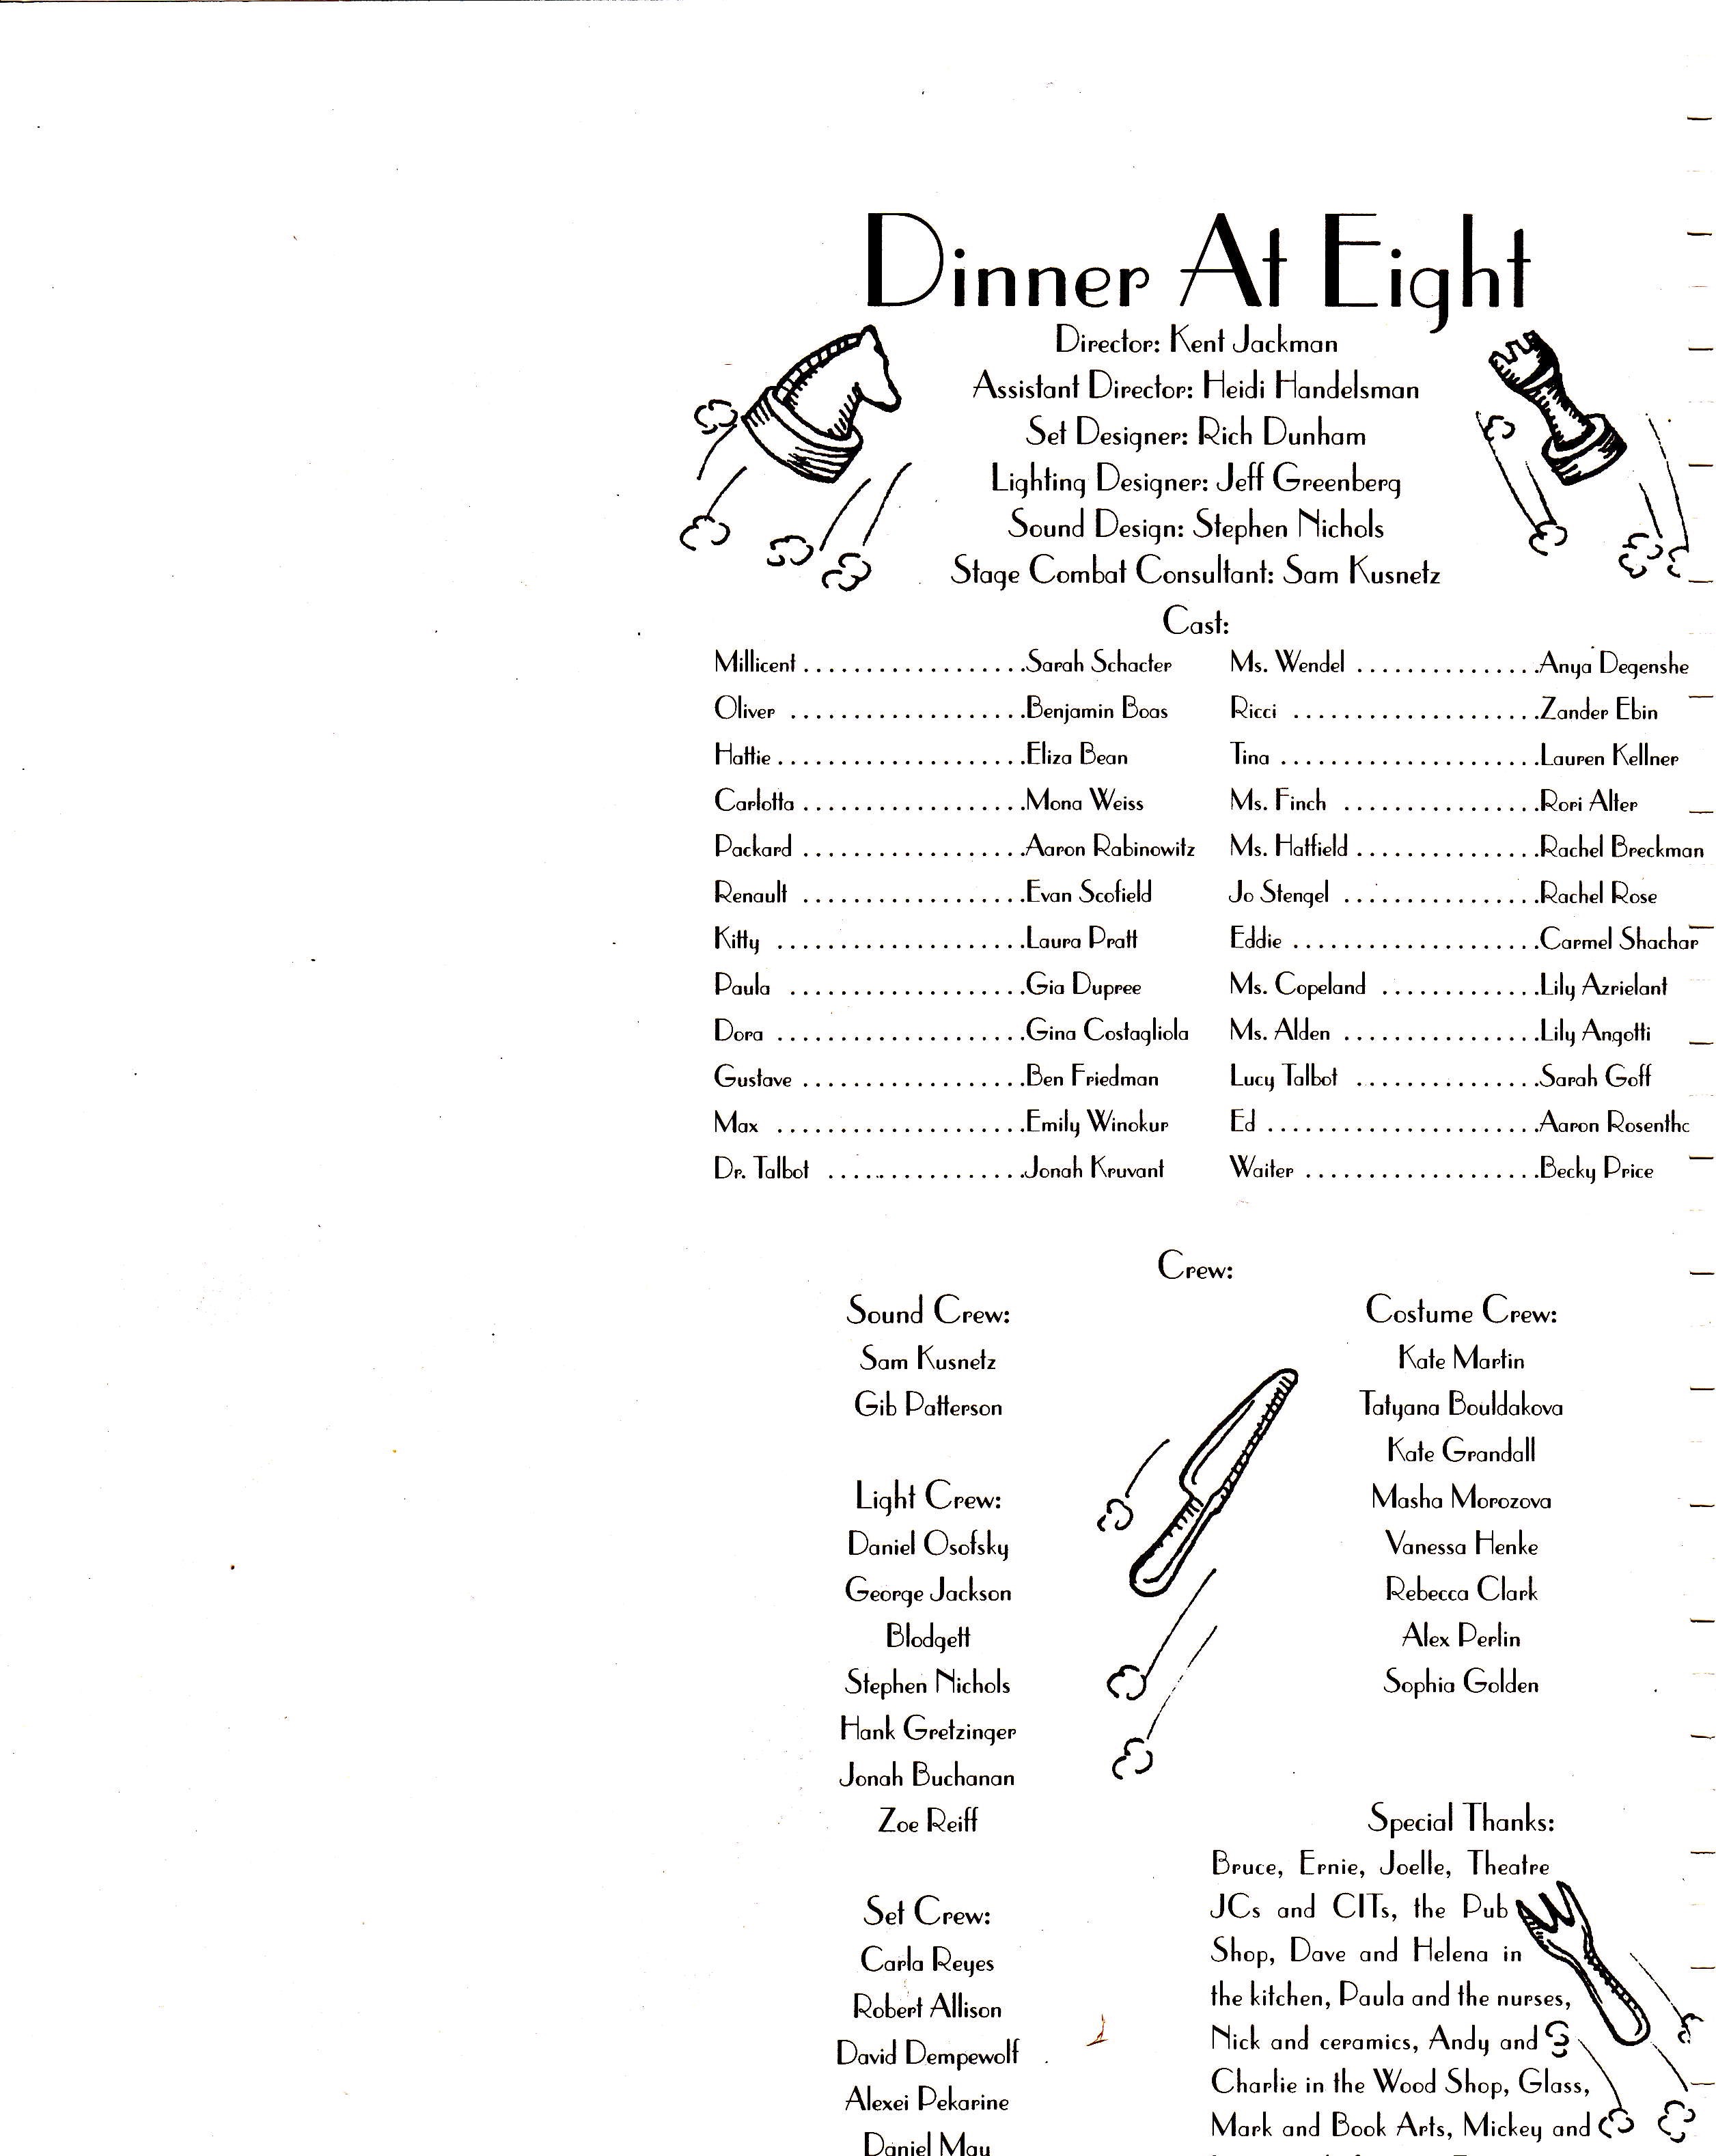 Dinner At Eight
Director: Kent Jackman
Assistant Director: Heidi Handelsman
Set Designer: Rich Dunham
Lighting Designer: Jeff Greenberg
Sound Design: Stephen Nichols
Stage Combat Consultant: Sam Kusnetz
Cast:
Millicent ..................Sarah Schacter
Oliver ...................Benjamin Boas
Hattie ....................Eliza Bean
Carlotta ..................Mona Weiss
Packard ..................Aaron Rabinowitz
Renault ..................Evan Scofield
Kitty ....................Laura Pratt
Paula ...................Gia Dupree
Dora ....................Gina Costagliola
Gustave ..................Ben Friedman
Max ....................Emily Winokur
Dr. Talbot ................Jonah Kruvant
Ms. Wendel ...............Anya Degenshe
Ricci ....................Zander Ebin
Tina .....................Lauren Kellner
Ms. Finch ................Rori Alter
Ms. Hatfield ...............Rachel Breckman
Jo Stengel ................Rachel Rose
Eddie ....................Carmel Shachar
Ms. Copeland .............Lily Azrielant
Ms. Alden ................Lily Angotti
Lucy Talbot ...............Sarah Goff
Ed ......................Aaron Rosentha
Waiter ...................Becky Price
Crew:
Sound Crew:
Sam Kusnetz
Gib Patterson
Light Crew:
Daniel Osofsky
George Jackson
Blodgett
Stephen Nichols
Hank Gretzinger
Jonah Buchanan
Zoe Reiff
Set Crew:
Carla Reyes
Robert Allison
David Dempewolf
Alexei Pekarine
Daniel May
Costume Crew:
Kate Martin
Tatyana Bouldakova
Kate Grandall
Masha Morozova
Vanessa Henke
Rebecca Clark
Alex Perlin
Sophia Golden
Special Thanks:
Bruce, Ernie, Joelle, Theatre
JCs and CITs, the Pub
Shop, Dave and Helena in
the kitchen, Paula and the nurses,
Nick and ceramics, Andy and
Charlie in the Wood Shop, Glass,
Mark and Book Arts, Mickey and